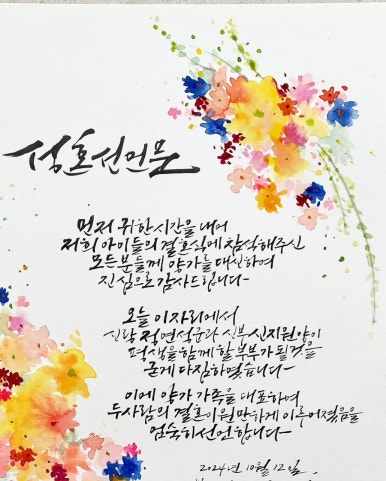 성혼선언문
먼저 귀한시간을 내어
저희 아이들의 결혼식에 참석해주신
모든분들께 양가를 대신하여
진심으로 감사드립니다
오늘 이자리에서
신랑 정연석군과 신부 신지원양이
평생을 함께 할 부부가 될것을
굳게 다짐하였습니다
이에 양가 가족을 대표하여
두사람의 결혼이 원만하게 이루어졌음을
엄숙히 선언합니다
2024년 10월 12일